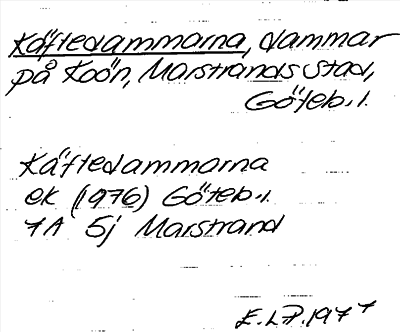 Käftedammarna, dammar
på Koön, Marstrands stad,
Göteb. l.
Käftedammarna
ek (1976) Göteb. l.
7A 5j Marstrand
E.L.P. 1977